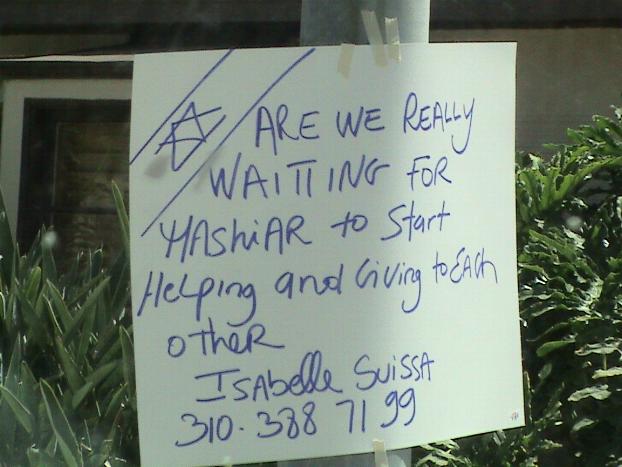 ARE WE REALLY
WAITTING FOR
MAShiAR to Start
HELPing and Giving to EACh
otheR
ISAbelle SuissA
310.388 71 99